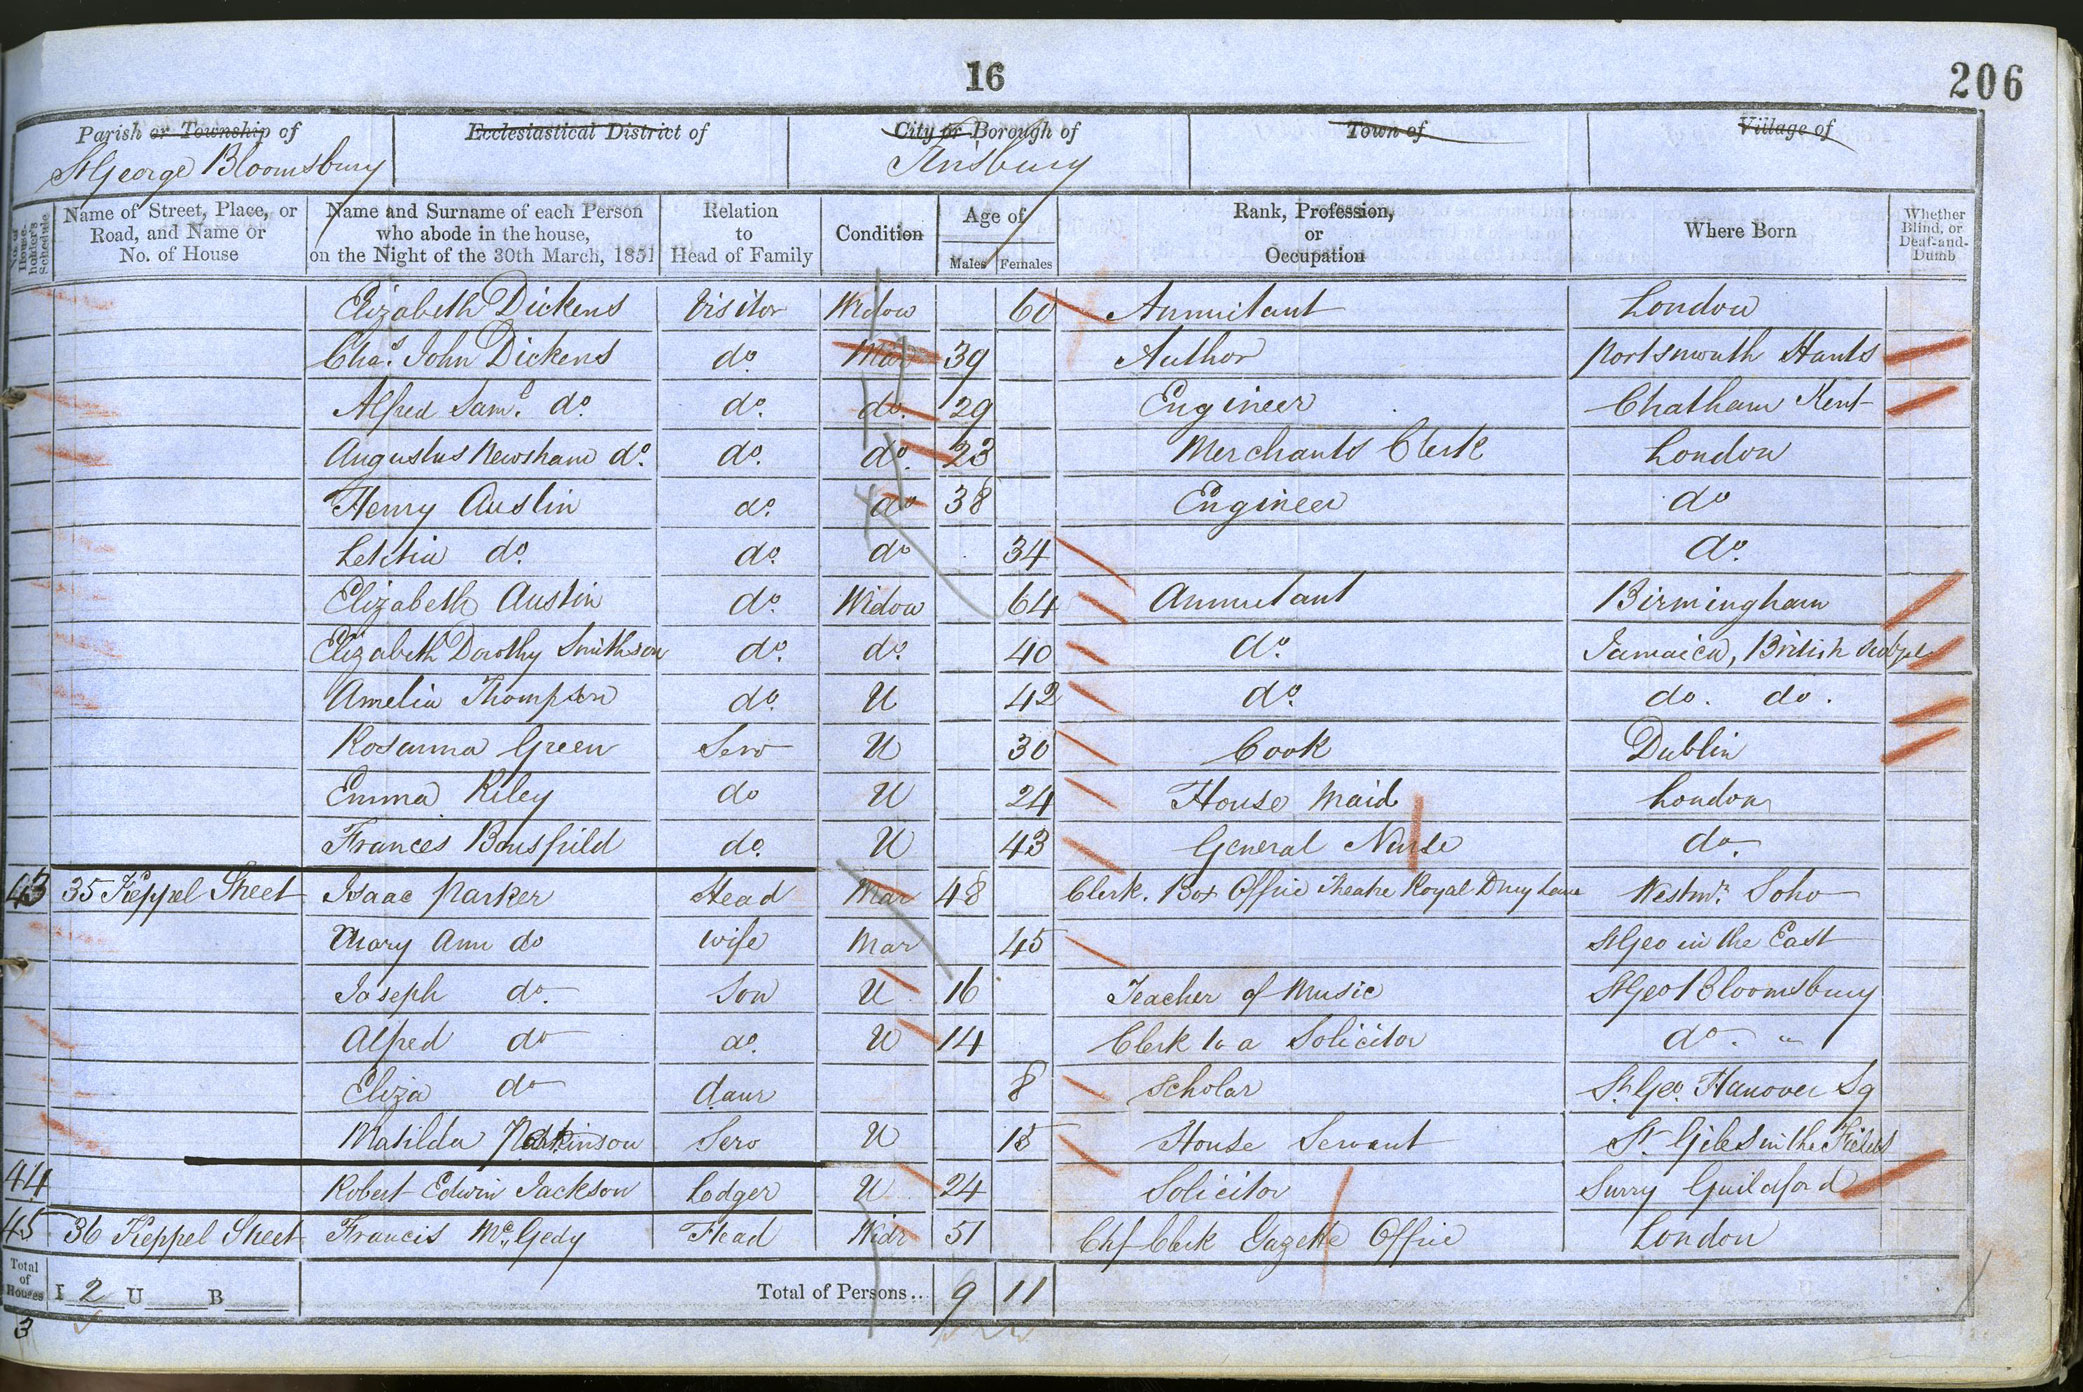 16
206
Parish or Township of
St George Bloomsbury
Ecclesiastical District of
City or Borough of
Finsbury
Town of
Village of
No. of House-holder's Schedule
Name of Street, Place, or Road, and Name or No. of House
Name and Surname of each Person who abode in the house, on the Night of the 30th March, 1851
Relation to Head of Family
Condition
Age of
Males Females
Rank, Profession, or Occupation
Where Born
Whether Blind, or Deaf-and-Dumb
Elizabeth Dickens Visitor Widow 60 Annuitant London
Chas. John Dickens do. Mar 39 Author Portsmouth Hants
Alfred Saml. do. do. do. 29 Engineer Chatham Kent
Augustus Newsham do. do. do. 23 Merchants Clerk London
Henry Austin do. do 38 Engineer do
Letitia do. do. do 34 do.
Elizabeth Austin do. Widow 64 Annuitant Birmingham
Elizabeth Dorothy Smithson do. do. 40 do. Jamaica, British
Amelia Thompson do. U 42 do. do. do.
Rosanna Green Serv U 30 Cook Dublin
Emma Riley do U 24 House Maid London
Frances Bousfield do. U 43 General Nurse do.
43 35 Keppel Street Isaac Parker Head Mar 48 Clerk. Box Office Theatre Royal Drury Lane Westmr. Soho
Mary Ann do Wife Mar 45 St Geo in the East
Joseph do. Son U 16 Teacher of Music St Geo Bloomsbury
Alfred do do. U 14 Clerk to a Solicitor do. "
Eliza do daur 8 Scholar St. Geo. Hanover Sq
Matilda Serv U 15 House Servant St Giles in the Fields
44 Robert Edwin Jackson Lodger U 24 Solicitor Surry Guildford
45 36 Keppel Street Francis Mc. Gedy Head Widr 51 Chf Clerk Gazette Office London
Total of Houses I 2 U B Total of Persons.. 9 11
3